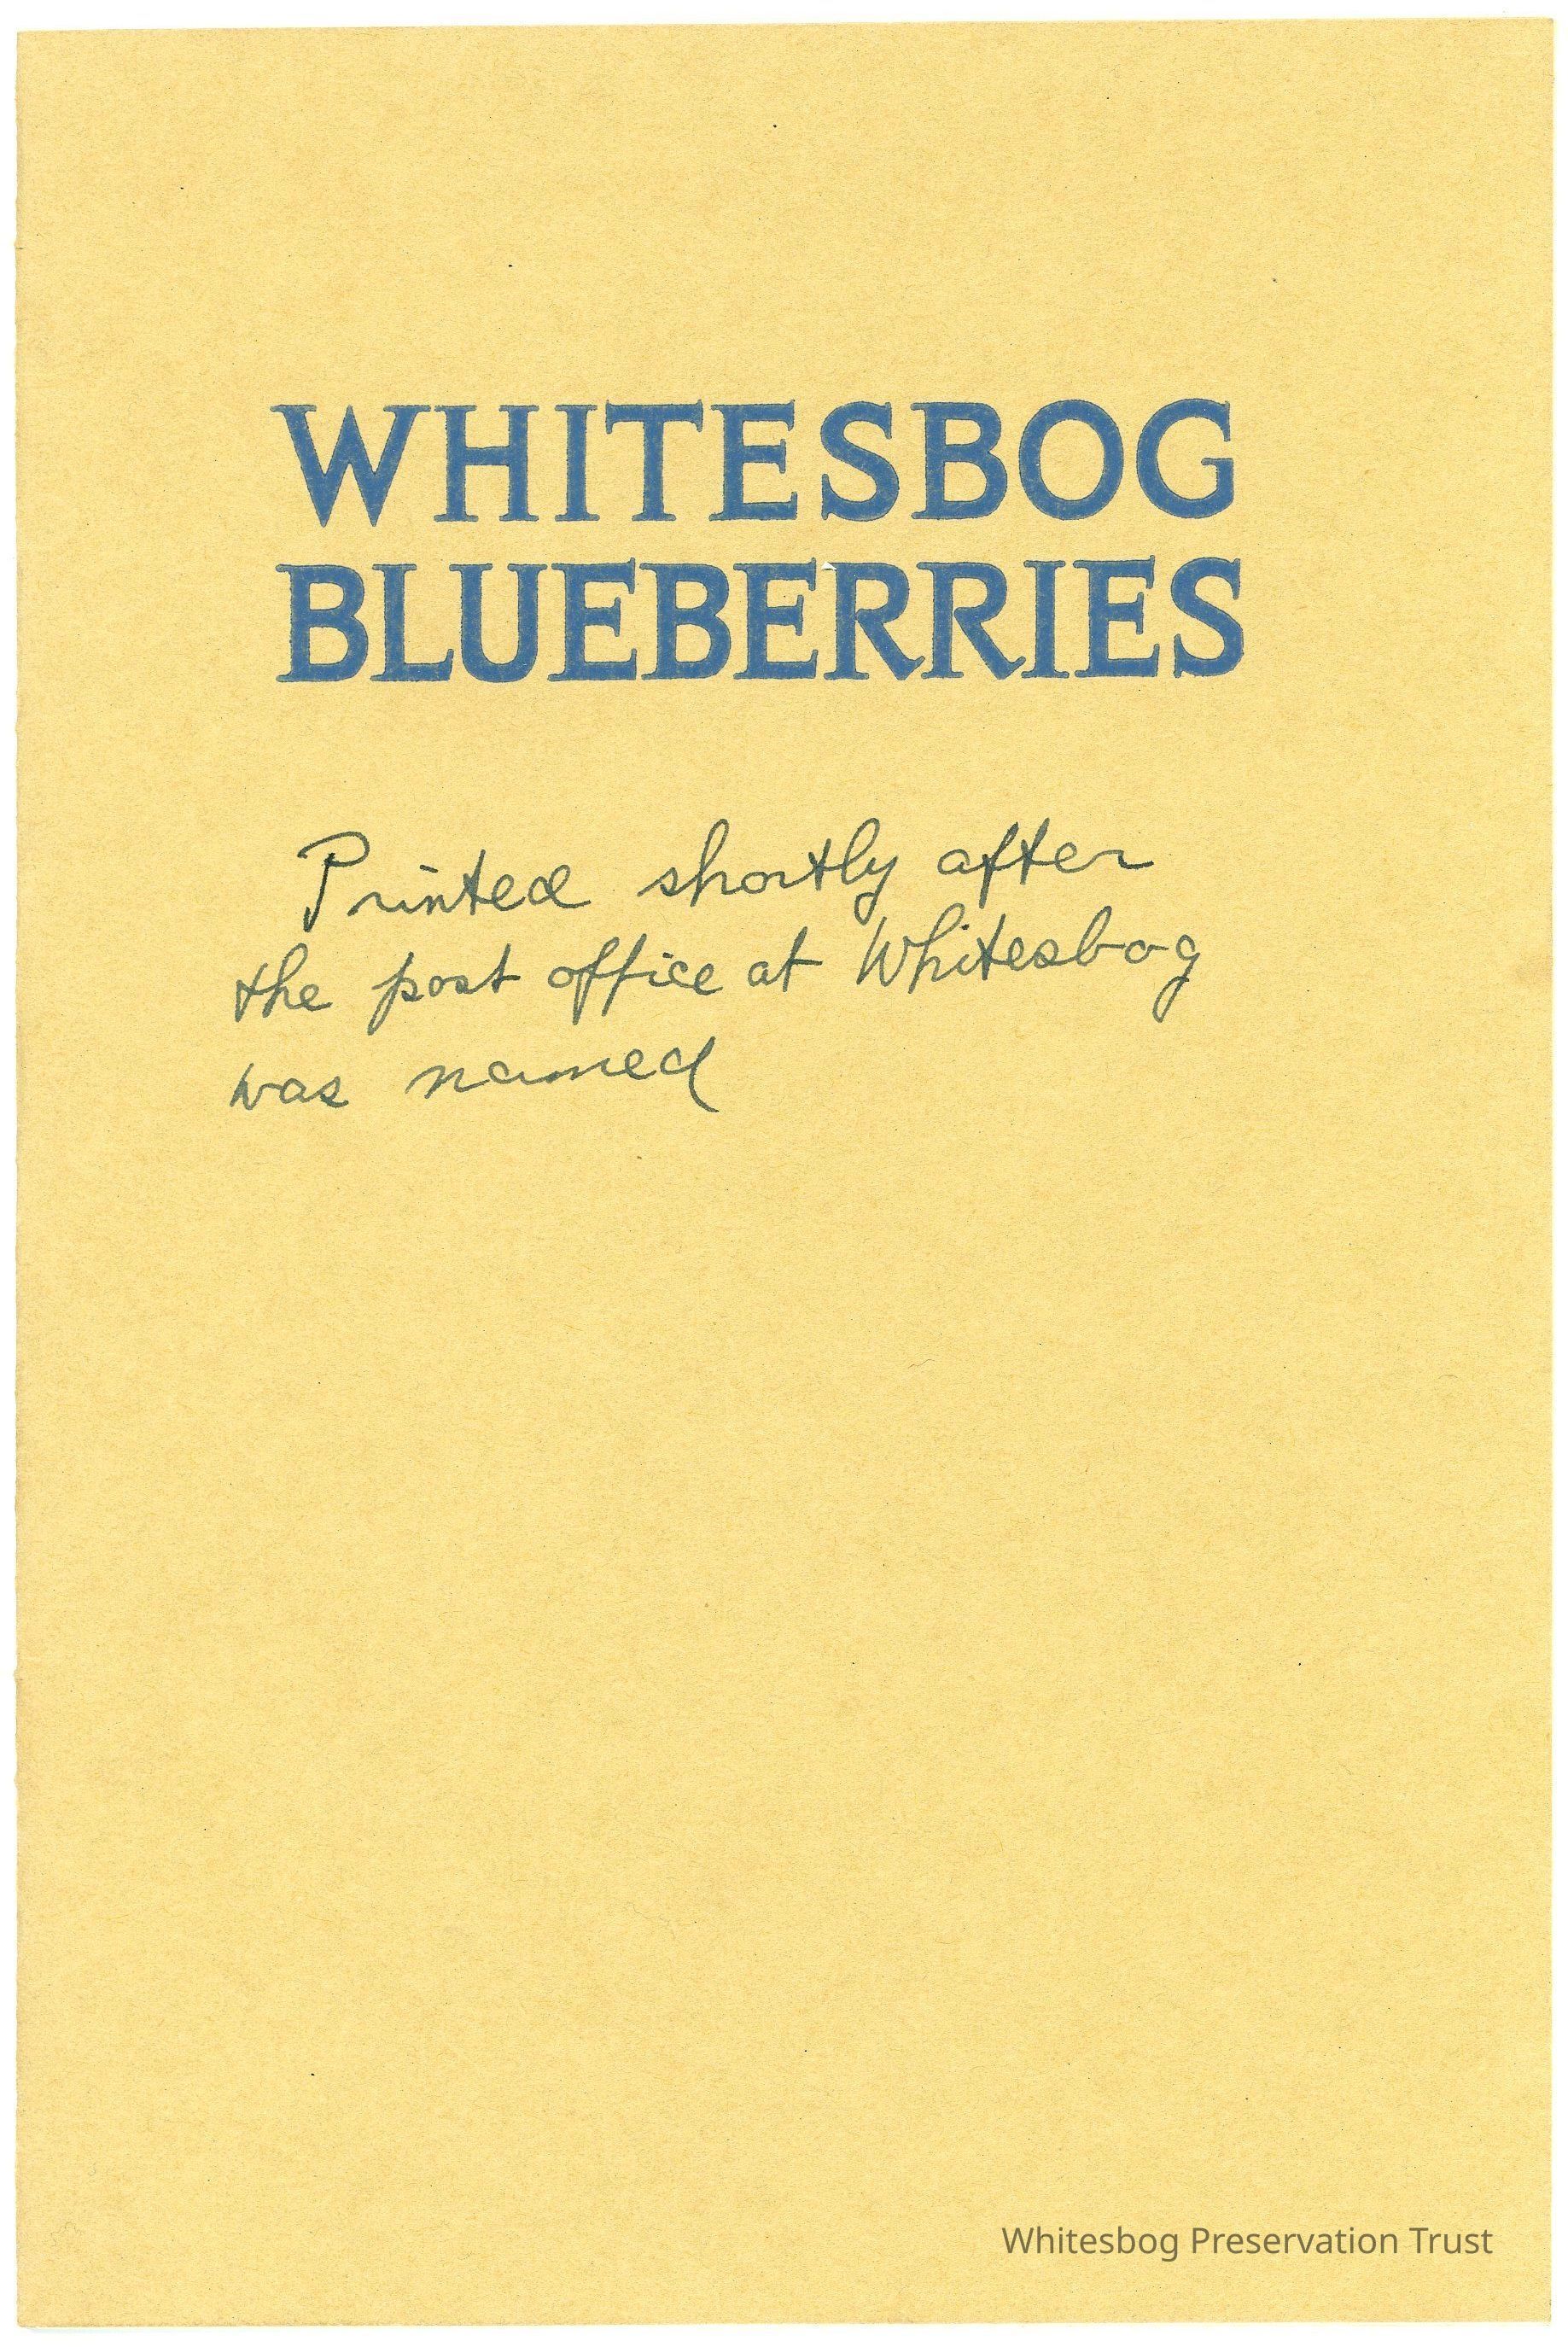 WHITESBOG
BLUEBERRIES
Printed shortly after
the post office at Whitesbog
was named
Whitesbog Preservation Trust